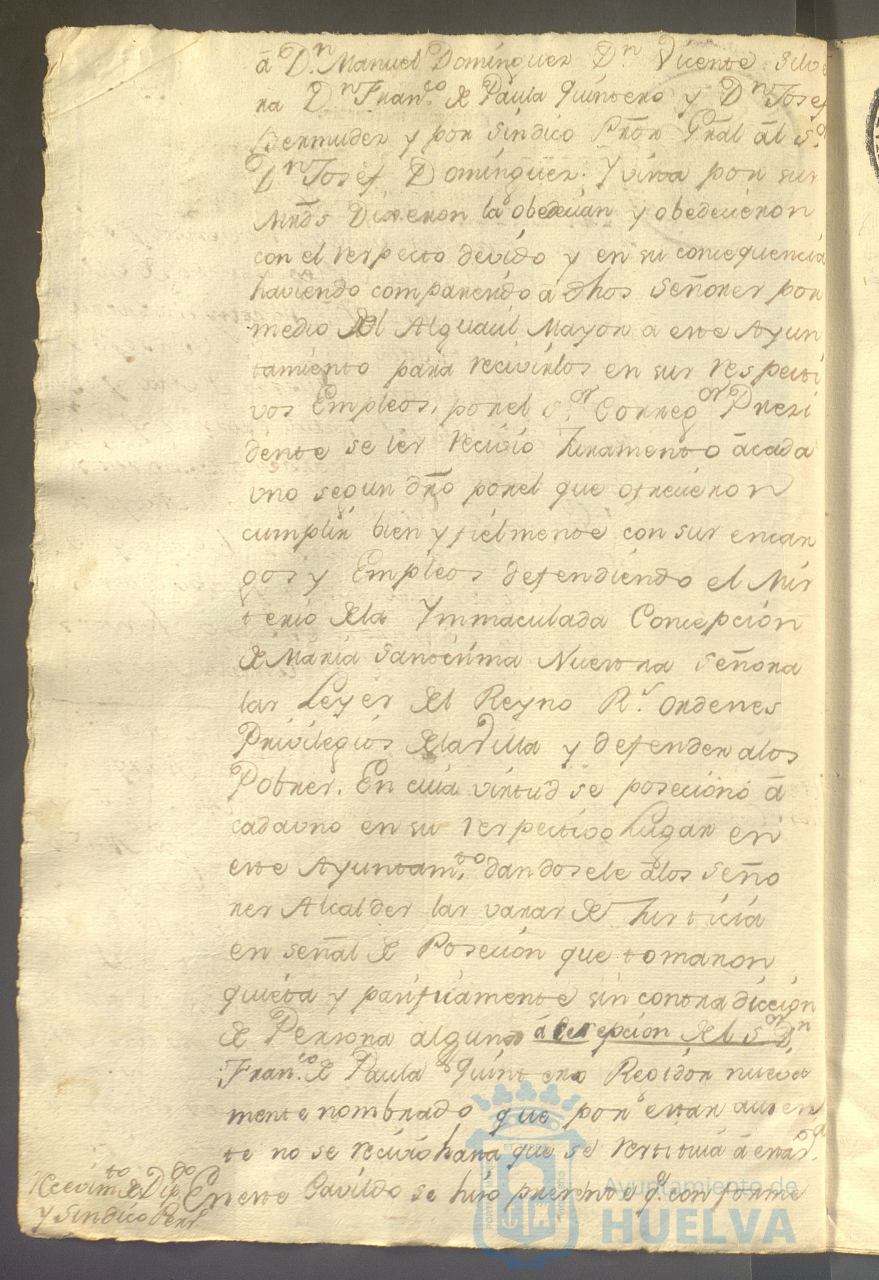 â Dn. Manuel Dominguez Dn. Vicente Silve
ra Dn Franco. de Paula Quintero y Dn Josef
Bermudez y por síndico Prõr Grãl ãl Sor.
Dn Josef Dominguez. Y vista por sus
Mrds Dixeron la obedecian y obedecieron
con el respecto devido y en su conceguencia
haviendo comparecido â dhos Señores por
medio del Alguacil Mayor â este Ayun
tamiento para recivirlos en sus respecti
vos Empleos, por el Sor. Corregor Presi
dente se les recivio Juramento âcada
uno segun dr̃o por el que ofrecieron
cumplir bien y fielmente con sus encar
gos y Empleos defendiendo el Mis
terio dela Ymmaculada Concepción
de Maria Santisima Nuestra Señora
las Leyes del Reyno Rs. ordenes
Privilegios dela Villa y defender alos
Pobres. En cuia virtud se posecionó â
cadauno en su respectivo Lugar en
este Ayuntamto. dandosele âlos Seño
res Alcaldes las varas de Justicia
en señal de Poseción que tomaron
quieta y pacificamente sin contradicción
de Persona alguna â excepcion del Sor Dn
Franco. de Paula Quintero Regidor nueva
mente nombrado que por estar ausen
te no se recivió hasta que se restituia â esta
Recivimto. de Dipdo
y Sindico Pers.
En este Cavildo se hizo presente q. conforme
Ayuntamiento de
HUELVA